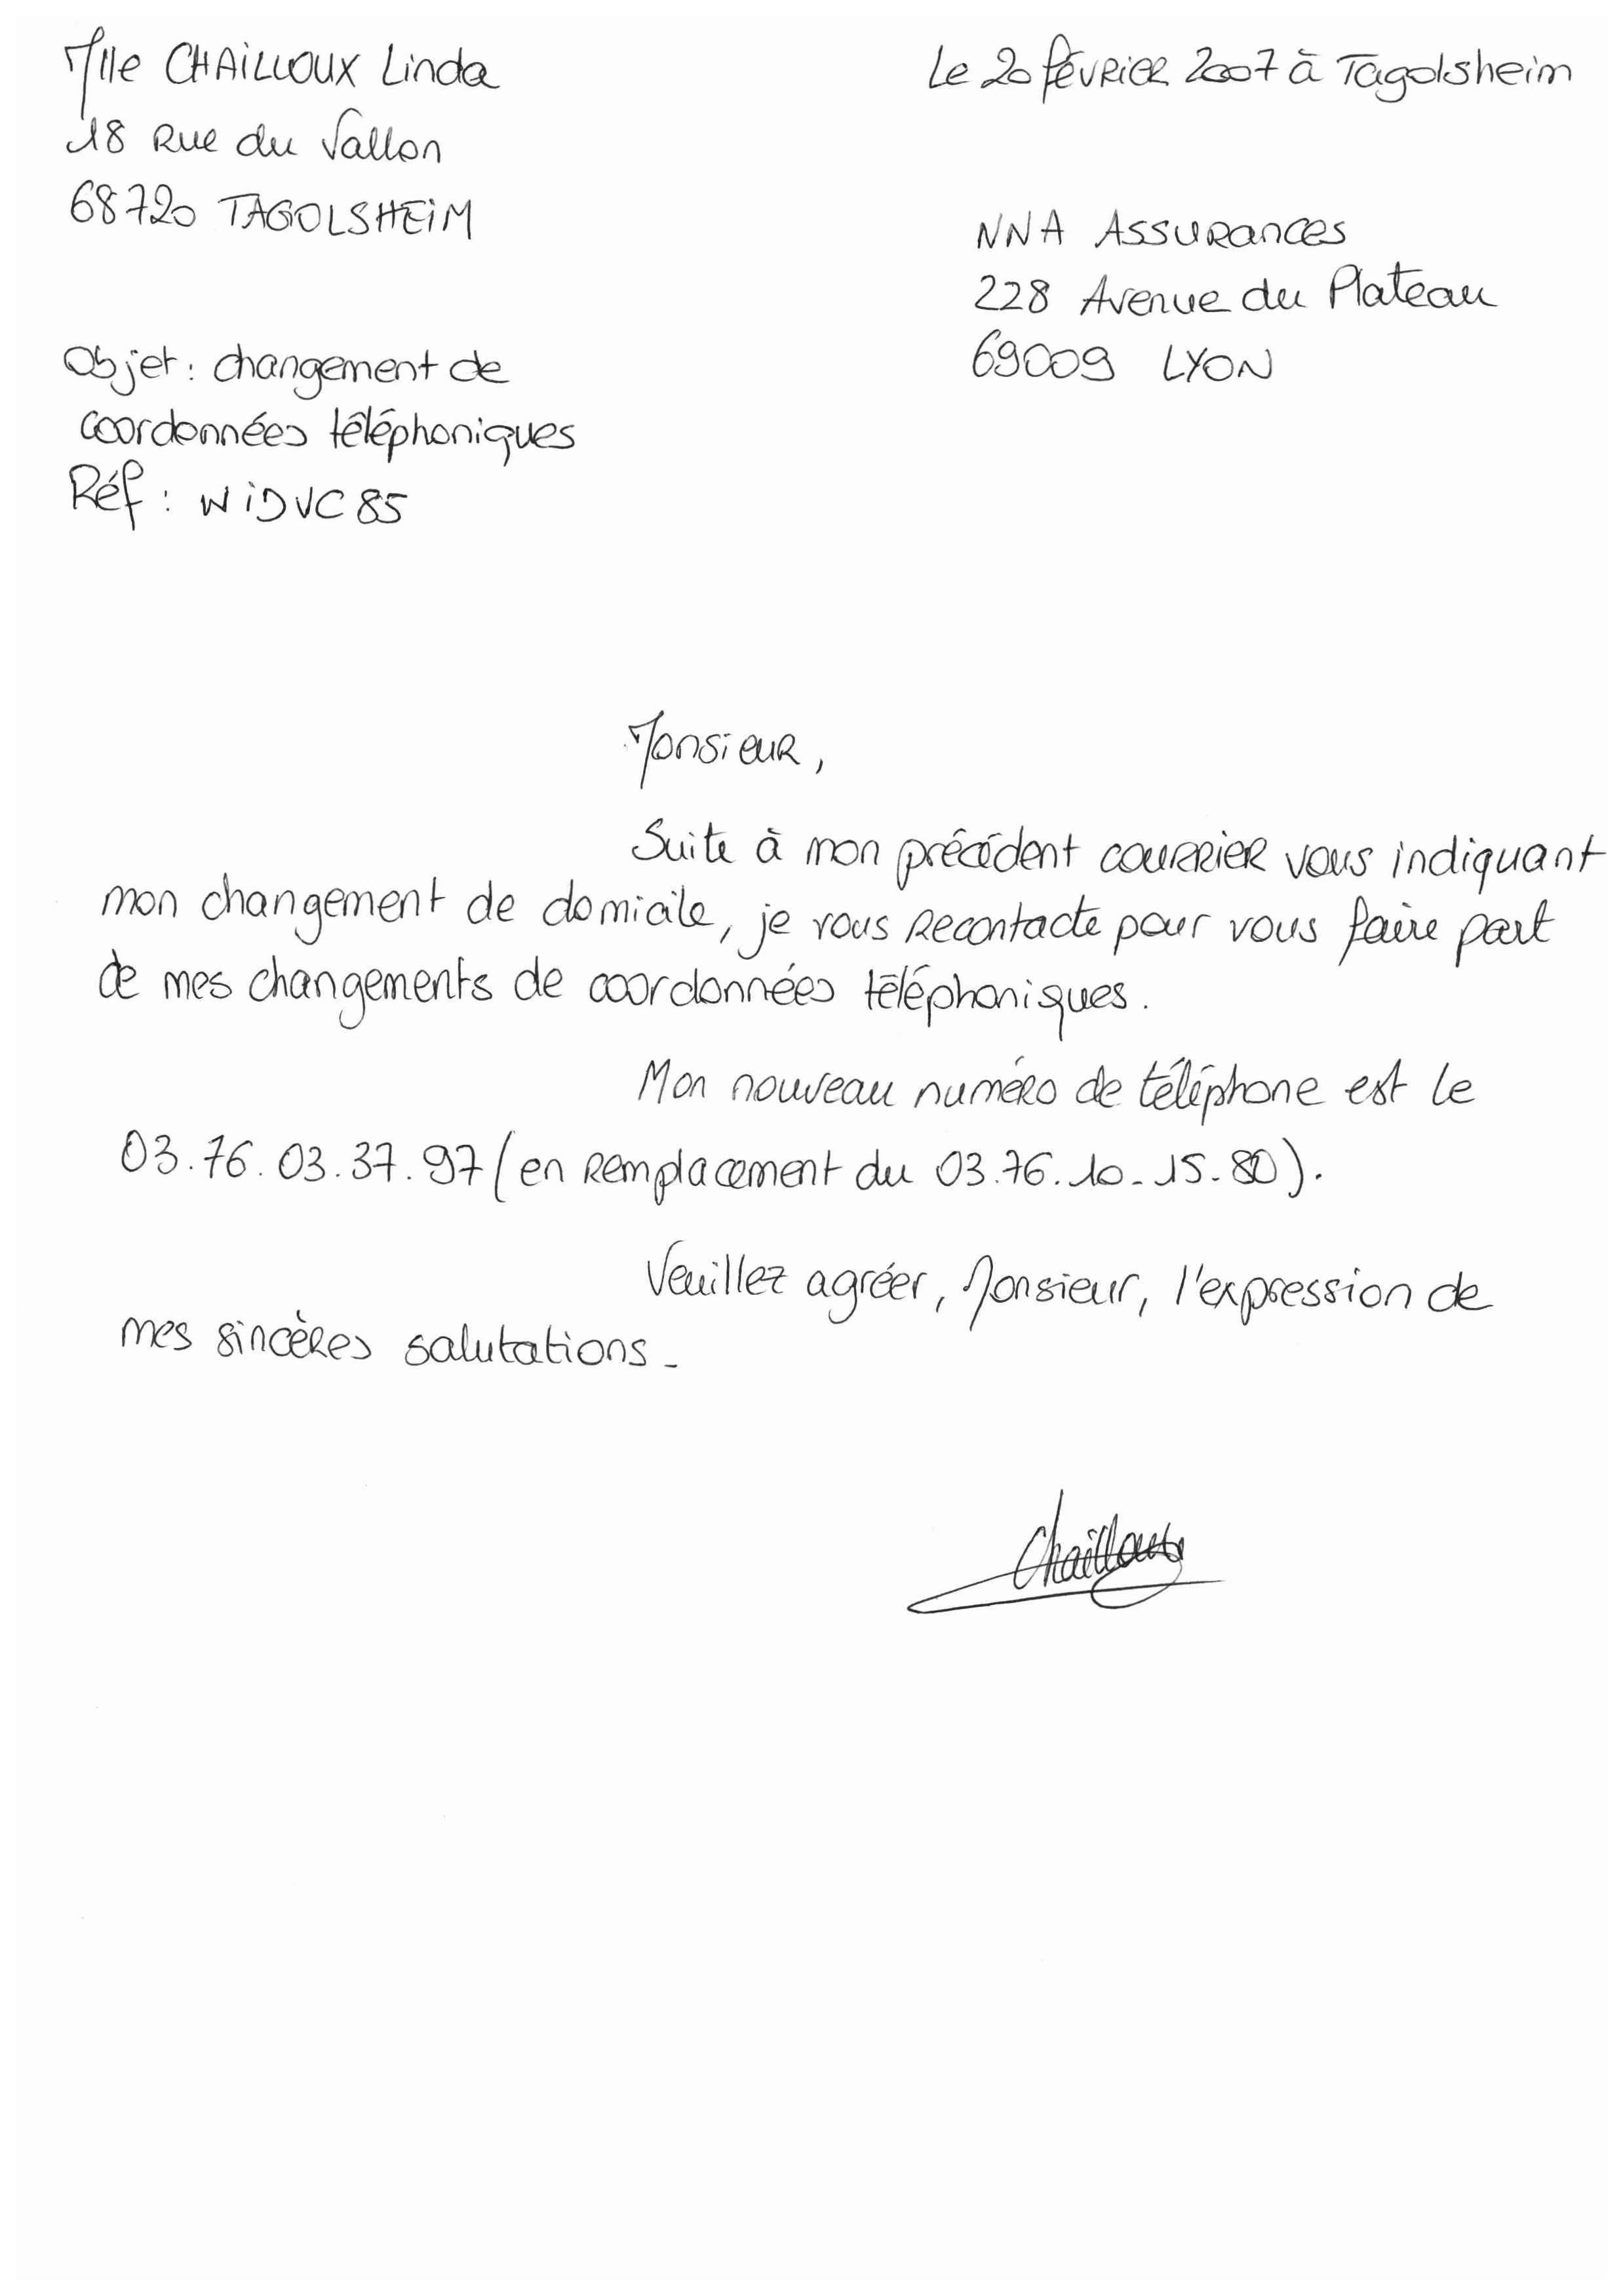 Mlle CHAILLOUX Linda
18 Rue du Vallon
68720 TAGOLSHEIM
Le 20 février 2007 à Tagolsheim
NNA Assurances
228 Avenue du Plateau
69009 LYON
Objet : changement de
coordonnées téléphoniques
Réf : WIDVC85
Monsieur,
Suite à mon précédent courrier vous indiquant
mon changement de domicile, je vous recontacte pour vous faire part
de mes changements de coordonnées téléphoniques.
Mon nouveau numéro de téléphone est le
03.76.03.37.97 (en remplacement du 03.76.10.15.80).
Veuillez agréer, Monsieur, l'expression de
mes sincères salutations.
Chailloux